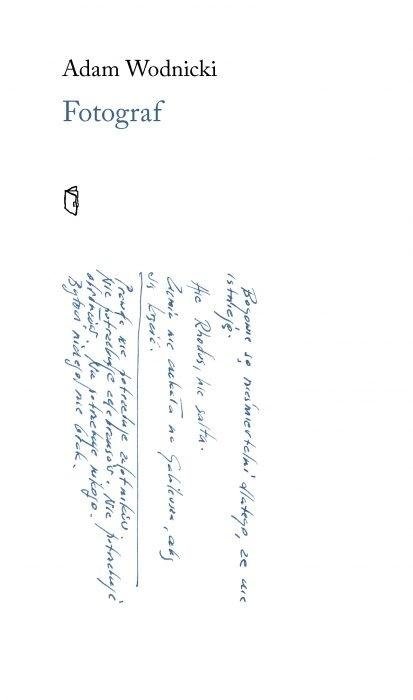 Adam Wodnicki
Fotograf
Bogowie są nieśmiertelni dlatego, że nie
istnieją.
Hic Rhodus, hic salta.
Ziemia nie czekała na Galileusza, aby
się kręcić.
Prawda nie potrzebuje zalotników.
Nie potrzebuje Nie potrzebuje
obrońców. Nie potrzebuje nikogo.
Bytowi niczego nie brak.